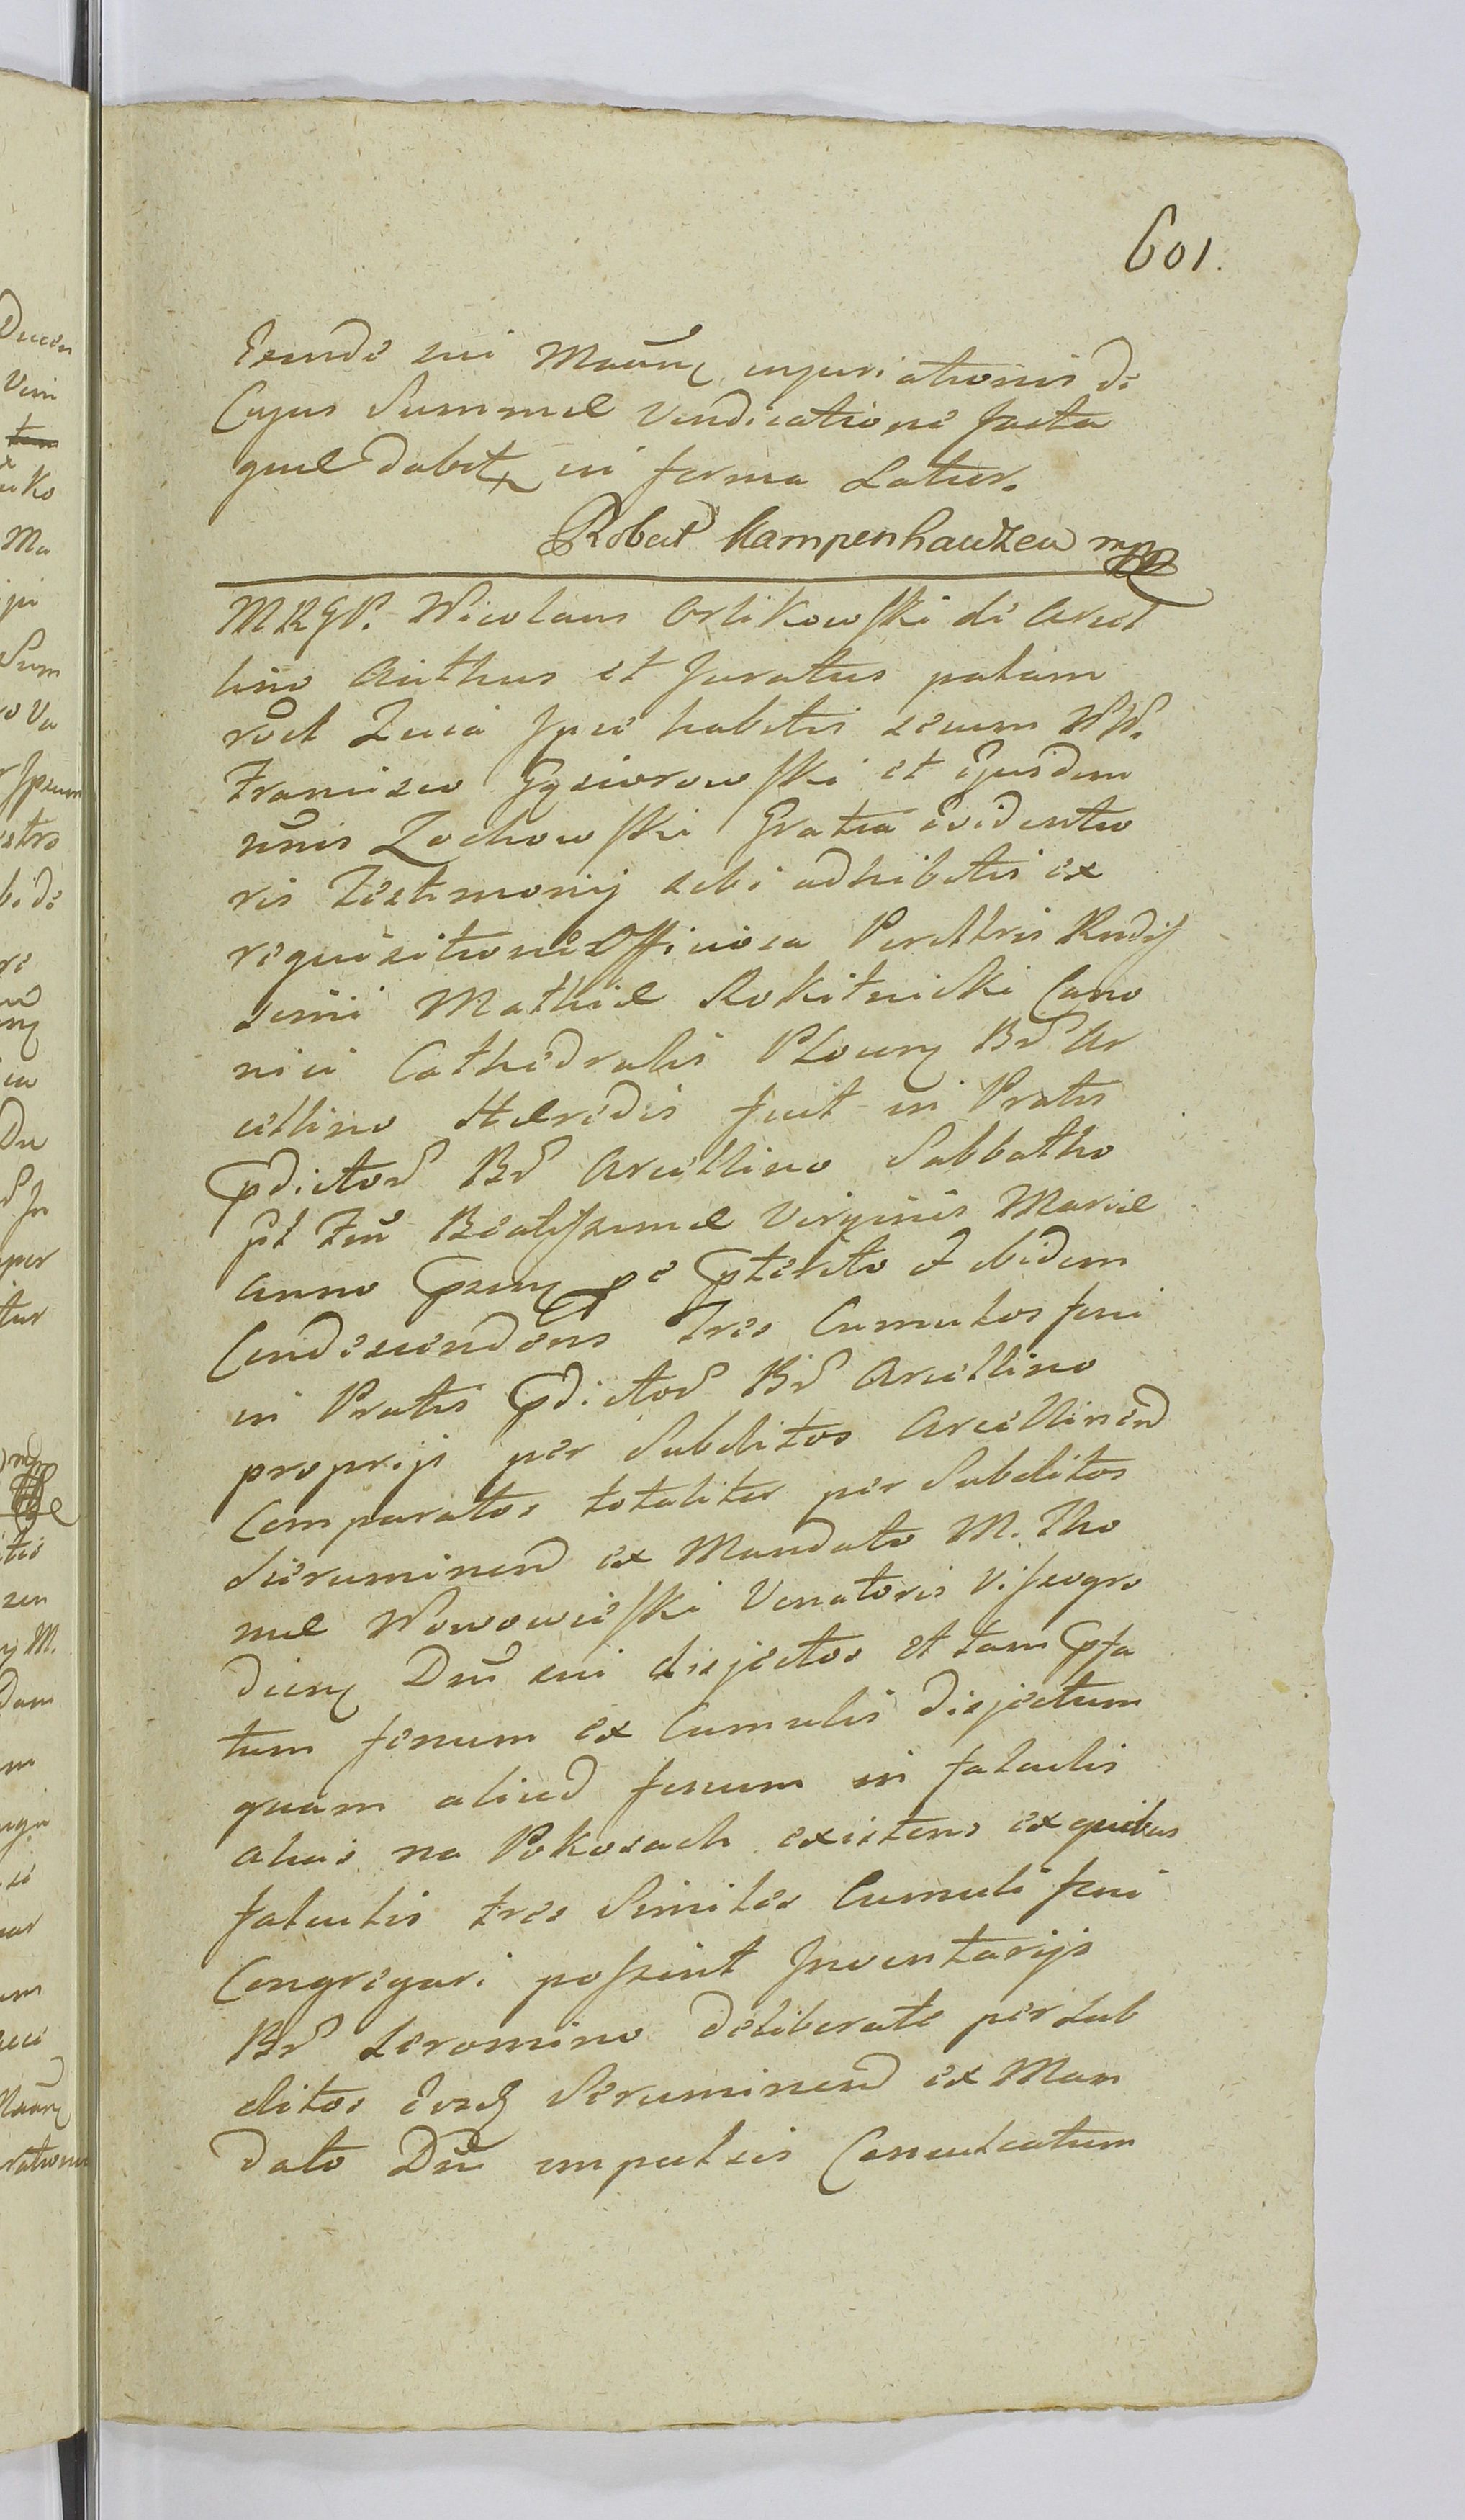 601.
sui injuriationis de
Cujus Summæ Vendicatione facta
quæ dabit in forma Latior.
Robert Kampenhauzen mpp
MRGP. Nicolaus Orlikowski de Arcel
lino Authus et Juratus palam
habitis secum NN.
Francisco Gąsiorowski et Ejusdem
Zochowski Gratia Evidentio
ris Testimonij sibi adhibitis ex
requisitione Officiosa Perilltris Rndis
simi Mathiæ Rokitnicki Cano
nici Cathedralis Plocen Br Ar
cellino Hæredis fuit in Pratis
pdictor Br Arcellino Sabbatho
pt Ftu Beatissimæ Virginis Mariæ
anno pterito et ibidem
Condescendens tres Cumulos feni
in Pratis pdictor Br Arcellino
proprijs per Subditos Arcellinen
Comparatos totaliter per Subditos
ex Mandato M. Tho
mæ Nowowieski Venatoris Viszogro
dien Dni sui disjectos et tam pfa
tum fenum ex Cumulis disjectum
quam aliud fenum in falculis
alias na Pokosach existens ex quibus
falculis tres Similes Cumuli feni
Congregari possint Inventarijs
Br Seromino deliberate per Sub
ditos Serominen ex Man
dato Dni impulsis Conculcatum